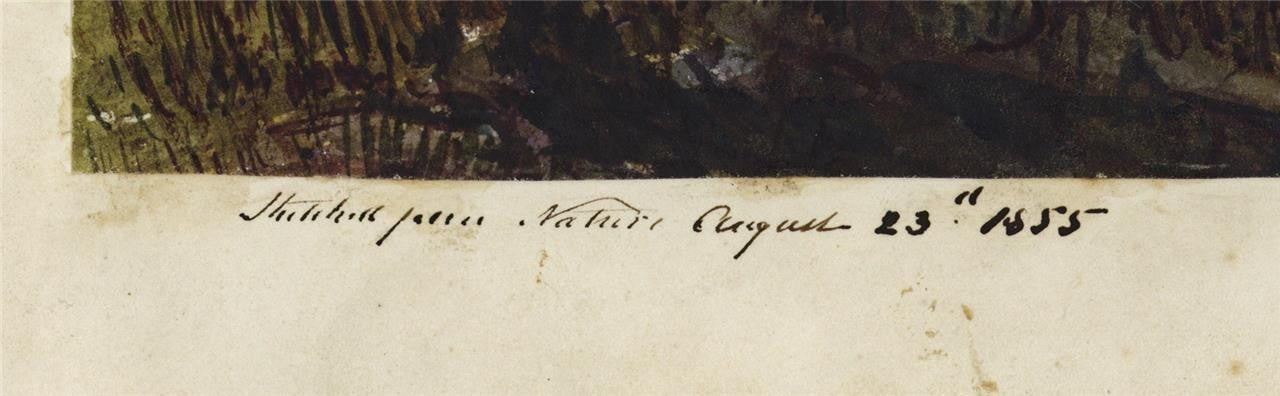 Sketched from Nature August 23.d 1855